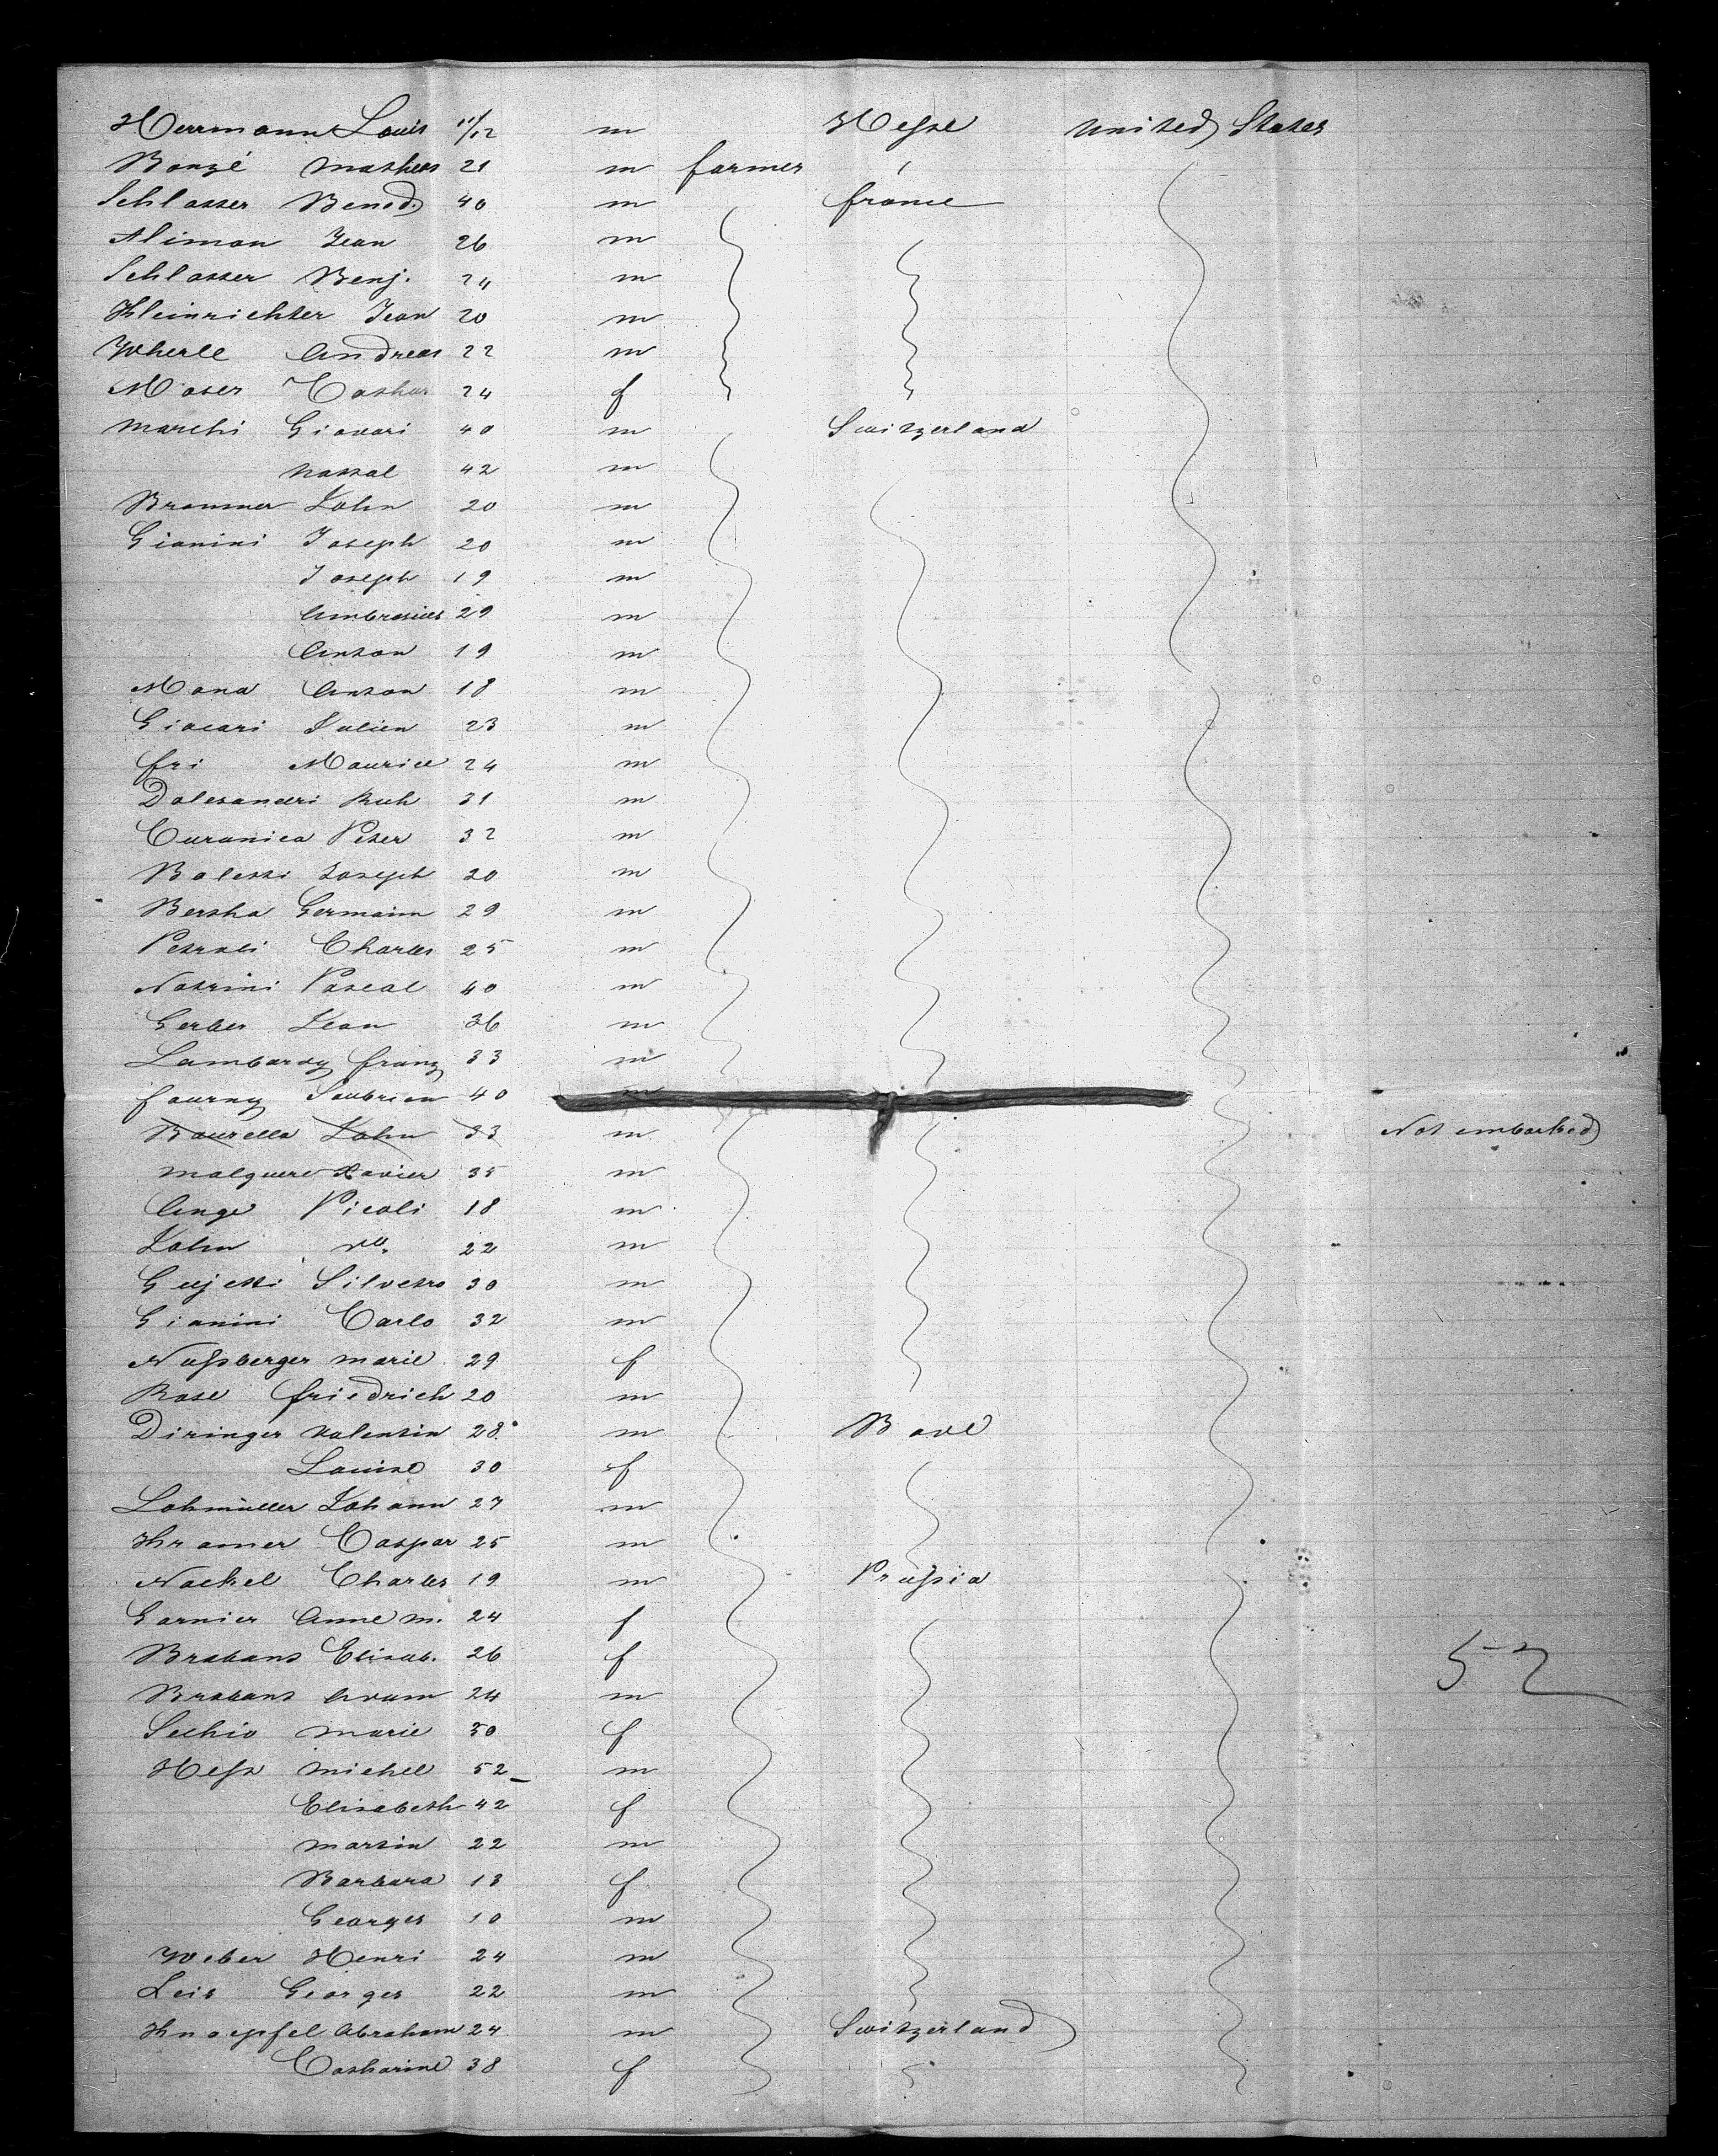 Herrmann Louis 11/12 m Hesse United States
Bonzé Matheas 21 m farmer
Schlosser Bened. 40 m france
Aliman Jean 26 m
Schlosser Benj. 24 m
Kleinrichter Jean 20 m
Wherle Andreas 22 m
Moser Cathar. 24 f
Marchi Giovari 40 m Switzerland
Natal 42 m
Brommer John 20 m
Gianini Joseph 20 m
Joseph 19 m
Ambrosius 29 m
Anton 19 m
Mona Anton 18 m
Giacari Julien 23 m
fri Maurice 24 m
Dalesandri Ruh 31 m
Curonica Peter 32 m
Baletti Joseph 20 m
Bertha Germain 29 m
Petroli Charles 25 m
Notrini Pascal 40 m
Gerber Jean 36 m
Lambardy franz 33 m
fourny Soubrien 40 m
Bourella John 33 m Not embarked
Malguere Xavier 35 m
Ange Picoli 18 m
John do. 22 m
Gujetti Silvetro 30 m
Gianini Carlo 32 m
Nussberger Marie 29 f
Rose friedrich 20 m
Diringer Valentin 28 m Bade
Louise 30 f
Lohmüller Johann 27 m
Kramer Caspar 25 m
Nackel Charles 19 m Prussia
Garnier Anne M. 24 f
Brabant Elisab. 26 f 52
Brabant Adam 24 m
Sechio Marie 30 f
Hess Michel 52 m
Elisabeth 42 f
Martin 22 m
Barbara 13 f
Georges 10 m
Weber Henri 24 m
Leis Georges 22 m
Knoepfel Abraham 24 m Switzerland
Catharine 38 f